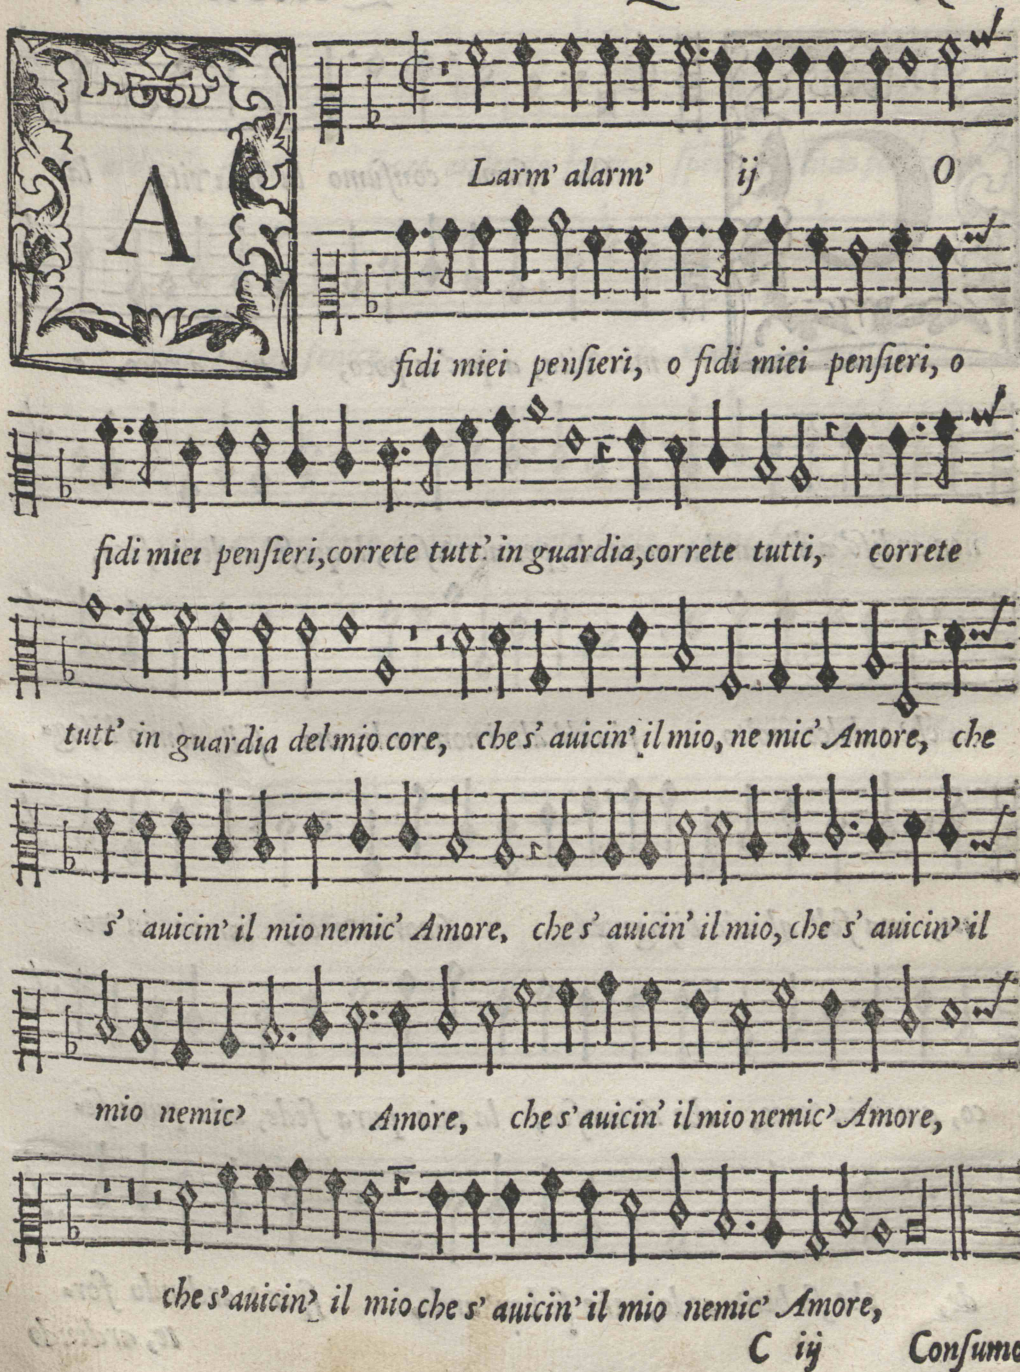 A
Larm’ alarm’ ij O
fidi miei penſieri, o fidi miei penſieri, o
fidi miei penſieri, correte tutt’ in guardia, correte tutti, correte
tutt’ in guardia del mio core, che s’ auicin’ il mio, ne mic’ Amore, che
s’ auicin’ il mio nemic’ Amore, che s’ auicin’ il mio, che s’ auicin’ il
mio nemic’ Amore, che s’auicin’ il mio nemic’ Amore,
che s’auicin’ il mio che s’ auicin’ il mio nemic’ Amore,
C iij Conſumo